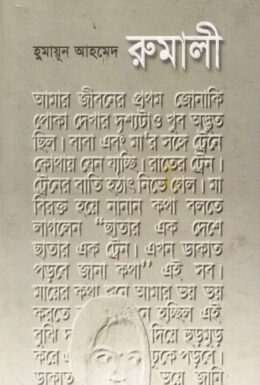 হুমায়ূন আহমেদ রুমালী
আমার জীবনের প্রথম জোনাকি
পোকা দেখার দৃশ্যটাও খুব অদ্ভুত
ছিল। বাবা এবং মা'র সঙ্গে ট্রেনে
কোথায় যেন যাচ্ছি। রাতের ট্রেন।
ট্রেনের বাতি হঠাৎ নিভে গেল। মা
বিরক্ত হয়ে নানান কথা বলতে
লাগলেন "ছাতার এক দেশে
ছাতার এক ট্রেন। এখন ডাকাত
পড়বে জানা কথা" এই সব।
মায়ের কথা শুনে আমার ভয় ভয়
করতে হচ্ছিল এই
বুঝি দিয়ে হুড়মুড়
করে ঢুকে পড়বে।
ডাকাত ভয়ে জানি